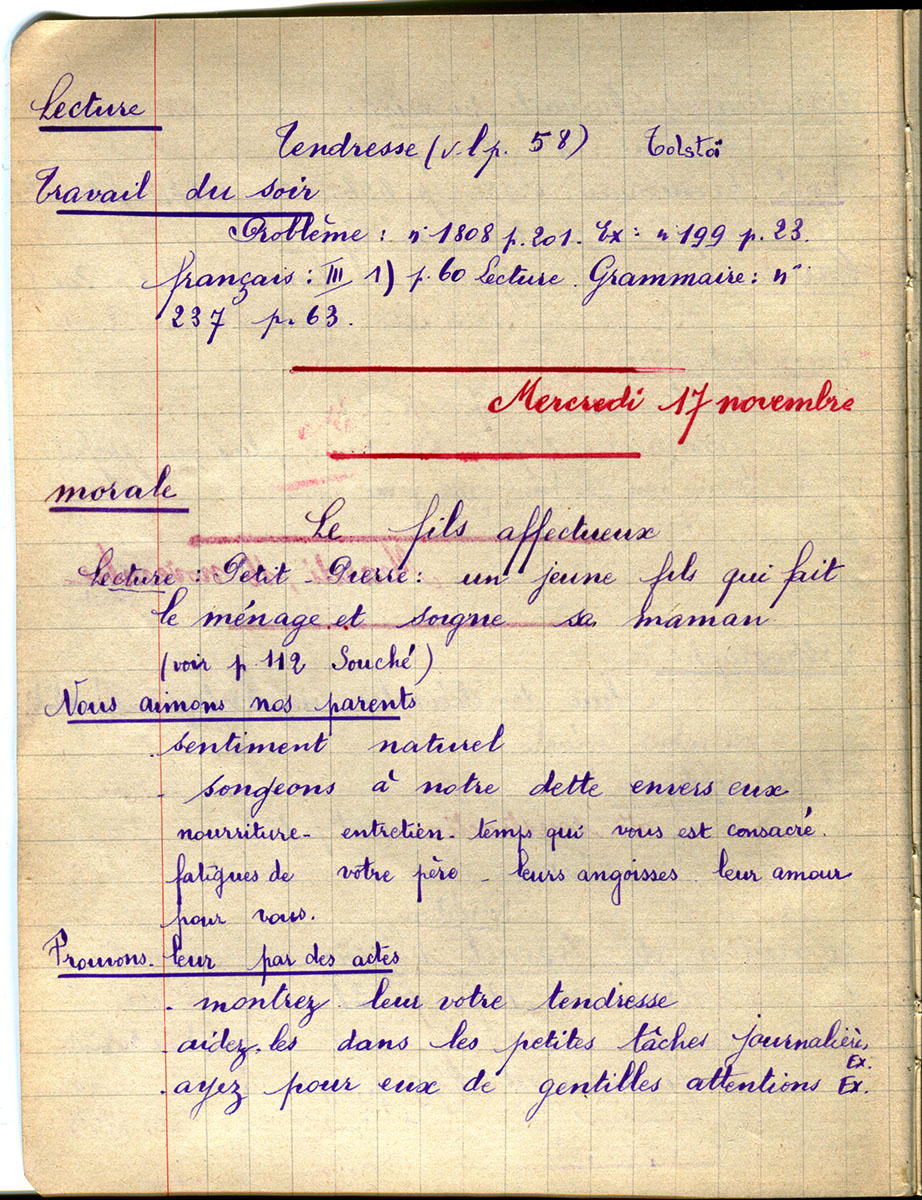 Lecture
Tendresse (v. l p. 58) Tolstoï
Travail du soir
Problème : n° 1808 p. 201. Ex : n° 199 p. 23.
français : III 1) p. 60 Lecture. Grammaire : n°
237 p. 63.
Mercredi 17 novembre
morale
Le fils affectueux
Lecture : Petit-Pierre : un jeune fils qui fait
le ménage et soigne sa maman
(voir p. 112 Souché)
Nous aimons nos parents
. sentiment naturel
. songeons à notre dette envers eux
nourriture - entretien - temps qui vous est consacré.
fatigues de votre père - leurs angoisses. leur amour
pour vous.
Prouvons-leur par des actes
. montrez-leur votre tendresse
. aidez-les dans les petites tâches journalières
Ex.
. ayez pour eux de gentilles attentions Ex.